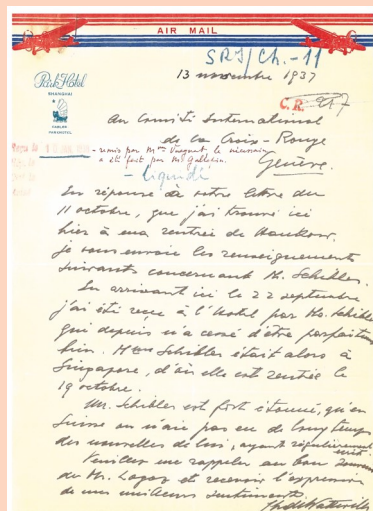 AIR MAIL
SRJ/Ch.-11
13 novembre 1937
Park Hotel
SHANGHAI
C.R.
au Comité International
de la Croix-Rouge
Genève.
- remis par Mme
a été fait par Mr
liquidé
En réponse à votre lettre du
11 octobre, que j'ai trouvée ici
hier à ma rentrée de Hankow,
je vous envoie les renseignements
suivants concernant M. Schibler.
En arrivant ici le 22 septembre
j'ai été reçu à l'hotel par Mr. Schibler
qui depuis n'a cessé d'être parfaitement
bien. Mme Schibler était alors à
Singapore, d'où elle est rentrée le
19 octobre.
Mr. Schibler est fort étonné, qu'en
Suisse on n'aie pas eu de longtemps
des nouvelles de lui, ayant régulièrement
écrit.
Veuillez me rappeler au bon souvenir
de Mr. Logoz et recevoir l'expression
de mes meilleurs sentiments.